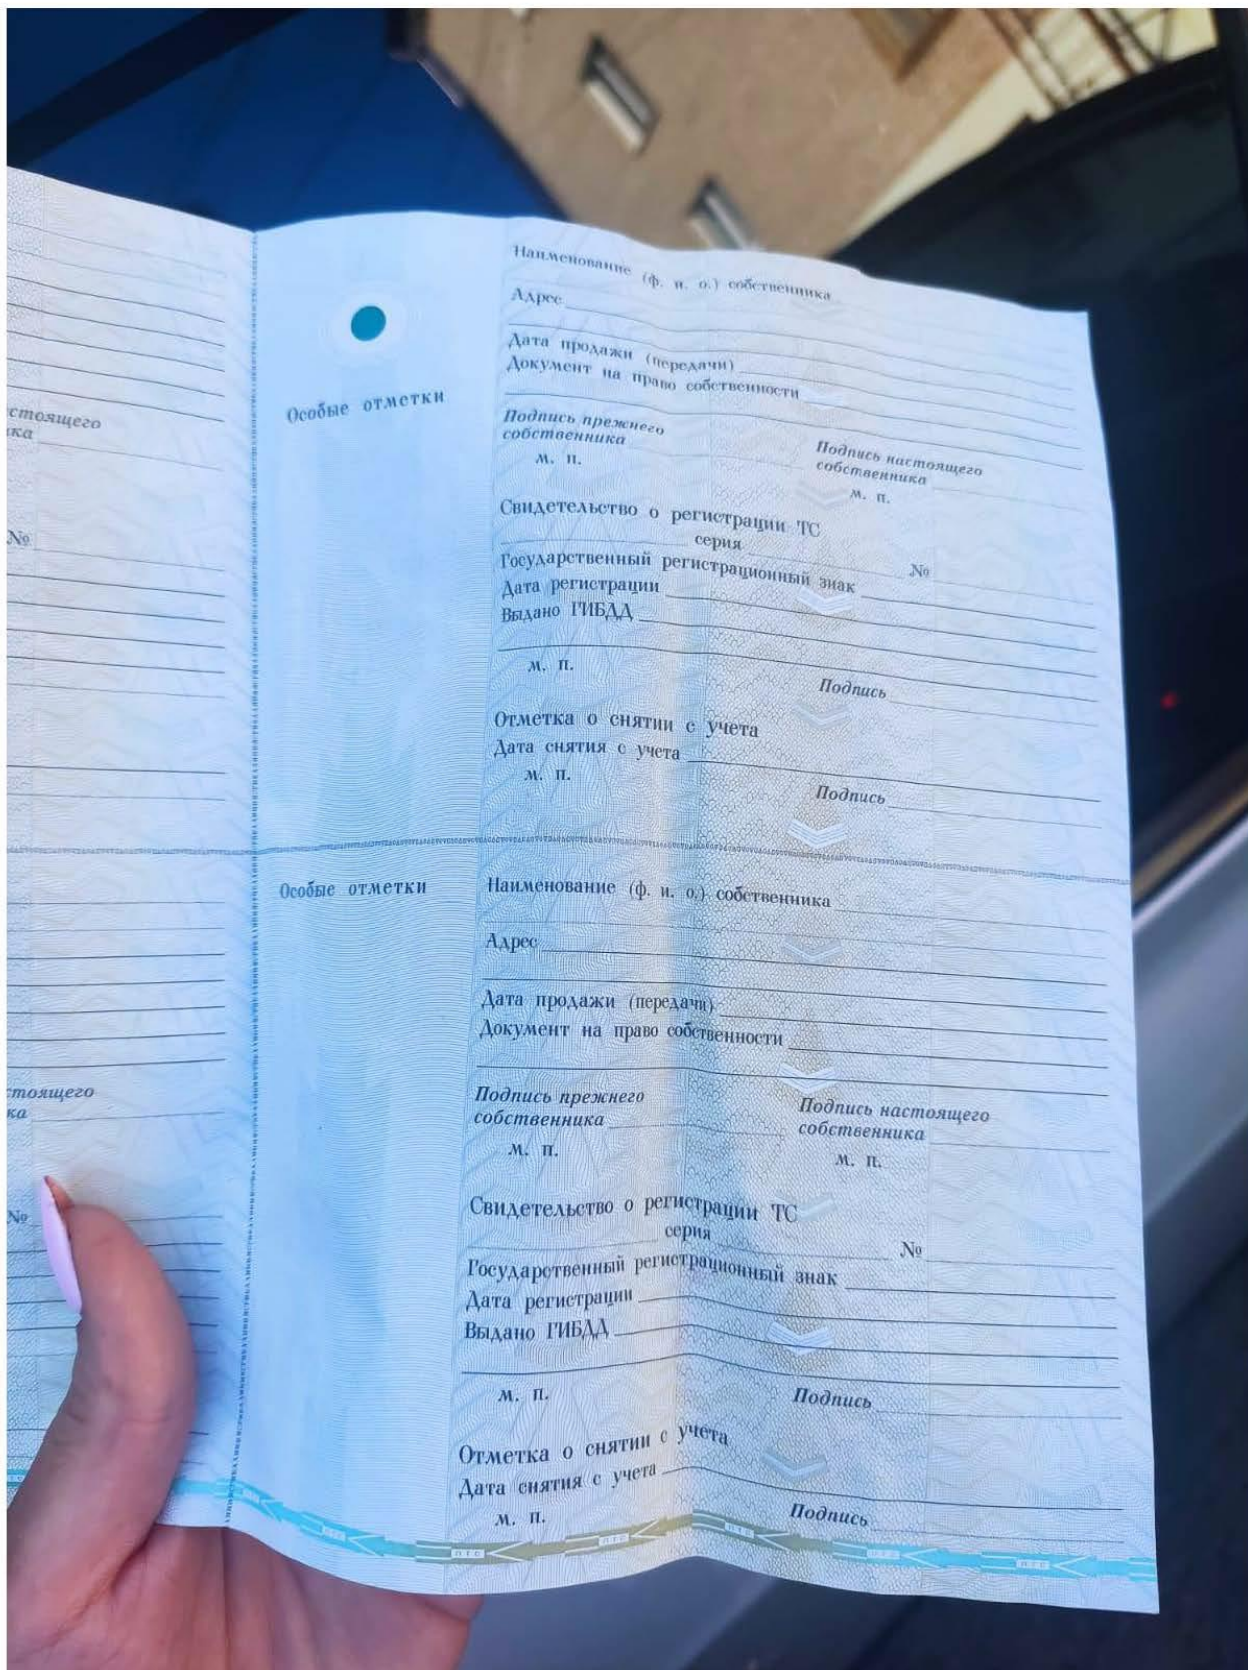 стоящего
ка
№
стоящего
ка
№
Особые отметки
Наименование (ф. и. о.) собственника
Адрес
Дата продажи (передачи)
Документ на право собственности
Подпись прежнего
собственника
Подпись настоящего
собственника
м. п.
м. п.
Свидетельство о регистрации ТС
серия №
Государственный регистрационный знак
Дата регистрации
Выдано ГИБДД
м. п.
Подпись
Отметка о снятии с учета
Дата снятия с учета
м. п.
Подпись
Особые отметки
Наименование (ф. и. о.) собственника
Адрес
Дата продажи (передачи)
Документ на право собственности
Подпись прежнего
собственника
Подпись настоящего
собственника
м. п.
м. п.
Свидетельство о регистрации ТС
серия №
Государственный регистрационный знак
Дата регистрации
Выдано ГИБДД
м. п.
Подпись
Отметка о снятии с учета
Дата снятия с учета
м. п.
Подпись
птс птс птс птс птс